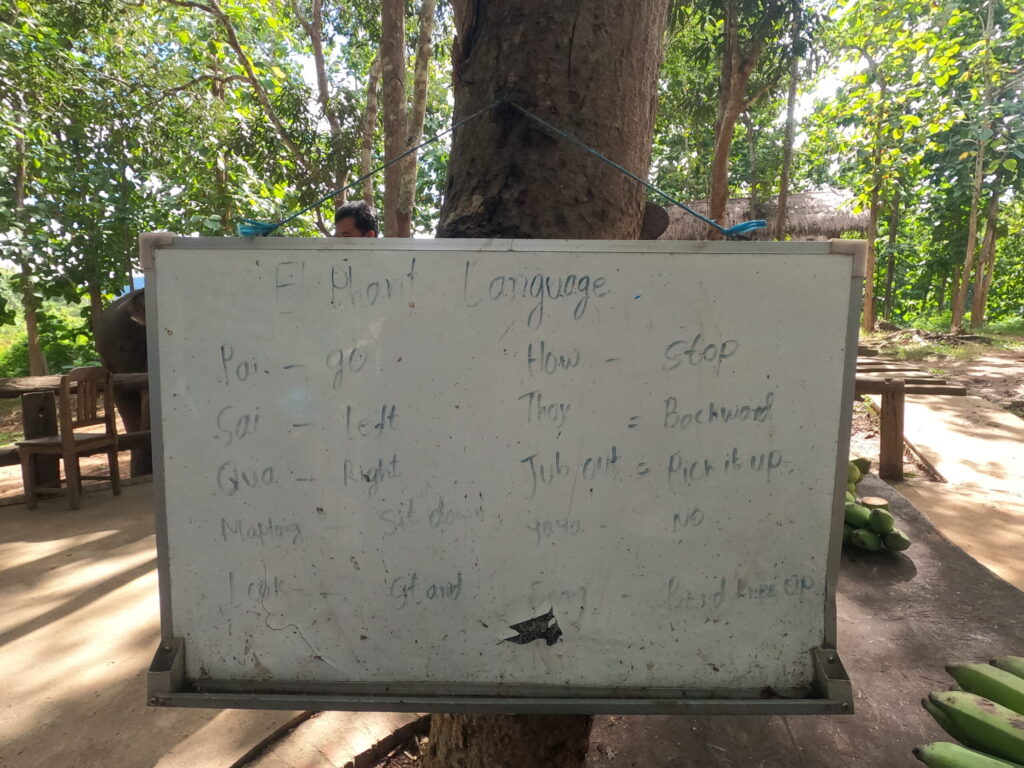 El Phant Language
Pai - go
How - Stop
Sai - left
Thoy = Backward
Qua - Right
Jub out = Pick it up
- Sit down
yaya - No
Look - Stand
- knee up